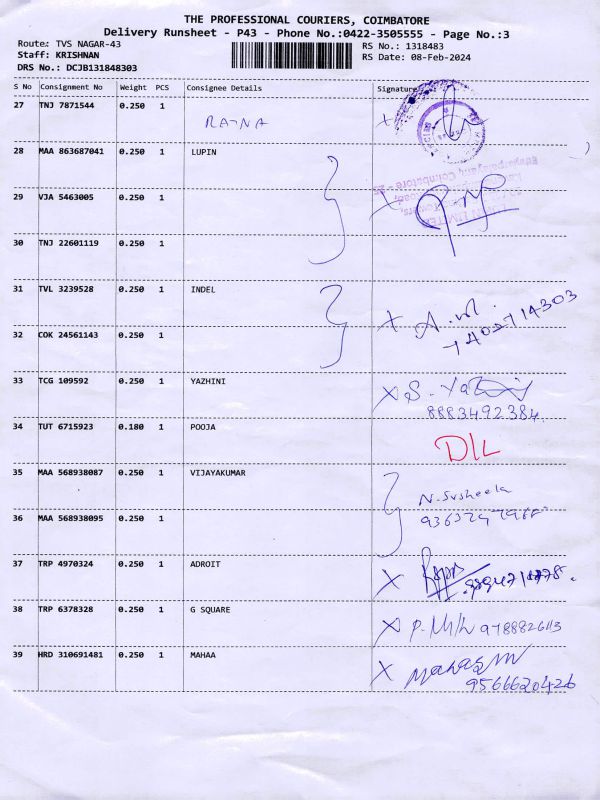 THE PROFESSIONAL COURIERS, COIMBATORE
Delivery Runsheet - P43 - Phone No.:0422-3505555 - Page No.:3
Route: TVS NAGAR-43
RS No.: 1318483
Staff: KRISHNAN
RS Date: 08-Feb-2024
DRS No.: DCJB131848303
S No Consignment No Weight PCS Consignee Details Signature
27 TNJ 7871544 0.250 1
RATNA
28 MAA 863687041 0.250 1 LUPIN
29 VJA 5463005 0.250 1
30 TNJ 22601119 0.250 1
31 TVL 3239528 0.250 1 INDEL
32 COK 24561143 0.250 1
33 TCG 109592 0.250 1 YAZHINI
8883492384
34 TUT 6715923 0.180 1 POOJA
D/L
35 MAA 568938087 0.250 1 VIJAYAKUMAR
N. Susheela
36 MAA 568938095 0.250 1
37 TRP 4970324 0.250 1 ADROIT
38 TRP 6378328 0.250 1 G SQUARE
39 HRD 310691481 0.250 1 MAHAA
9566620426